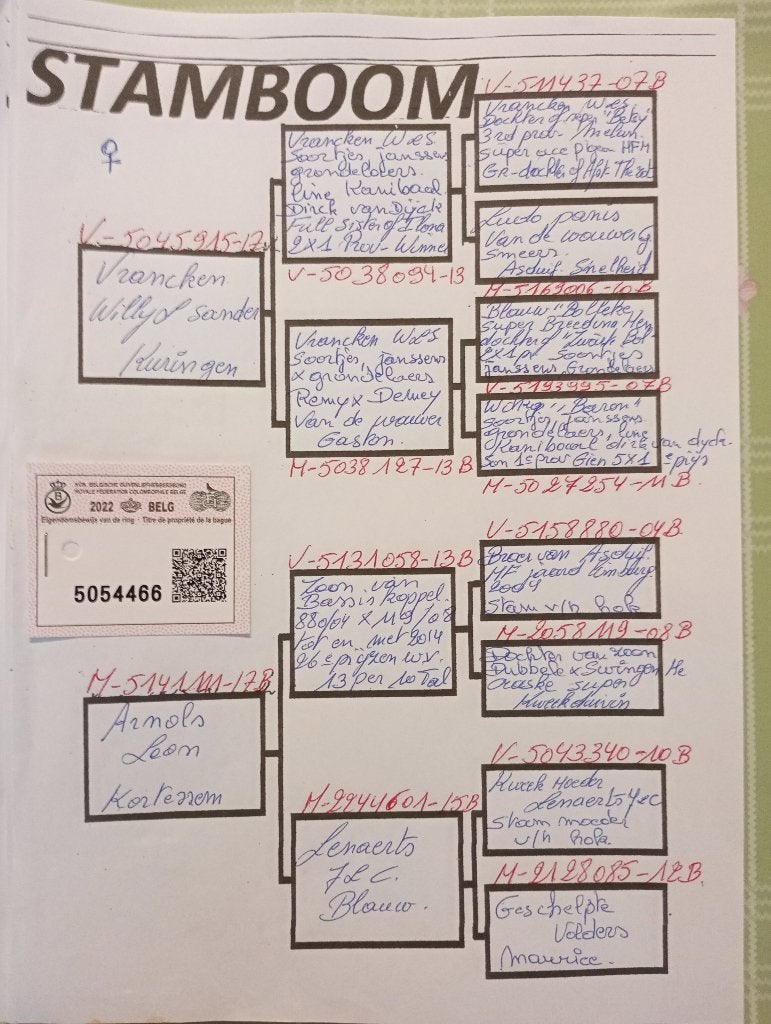 STAMBOOM
♀
V-5045915-17
Vrancken
Willy & Sander
Kuringen
KON. BELGISCHE DUIVENLIEFHEBBERSBOND
ROYALE FÉDÉRATION COLOMBOPHILE BELGE
2022 BELG
Eigendomsbewijs van de ring - Titre de propriété de la bague
5054466
M-5141111-17B
Arnols
Leon
Kortessem
Vrancken W&S
Soortjes Janssens
grondelaers.
line Kanibaal
Dirck van Dijck
Full Sister of Ilona
2X1 Prov-Winner
V-5038094-13
Vrancken W&S
Soortjes, Janssens
x grondelaers
Remy x Demey
Van de wouwer
Gaston.
M-5038127-13B
V-5131058-13B
Zoon van
Bassis koppel.
880/04 x 119/08
tot en met 2014
26 e prijzen w.v.
13 per 10 Tal
M-2944601-15B
Lenaerts
J&C.
Blauw.
V-511437-07B
Vrancken W&S.
Dochter of super "Betsy"
3rd prov.
Super ace pigeon HFM
Gr-dochter of
Ludo panis
Van de wouwer G
Smeers.
Asduif Snelheid
M-5169006-10B
Blauw "Bolleke
Super Breeding Hen
dochter of
2X1 pr Soontjes
Janssens, Grondelaers
V-5193995-07B
"Baron"
Soortjes Janssens.
Grondelaers, line
Kanibaal dirk van dyck.
Son 1e prov Gien 5X1e prijs
M-5027254-11B.
V-5158880-04B
Broer van Asduif.
HF jaard Limburg.
2004
Stam v/h hok
M-2058119-08B
Dochter van zoon
Dubbele x
Oraske super
Kweekduivin
V-5043340-10B
Kweek Moeder
Lenaerts J&C
Stam moeder
v/h hok.
M-2128085-12B.
Geschelpte
Volders
Maurice.